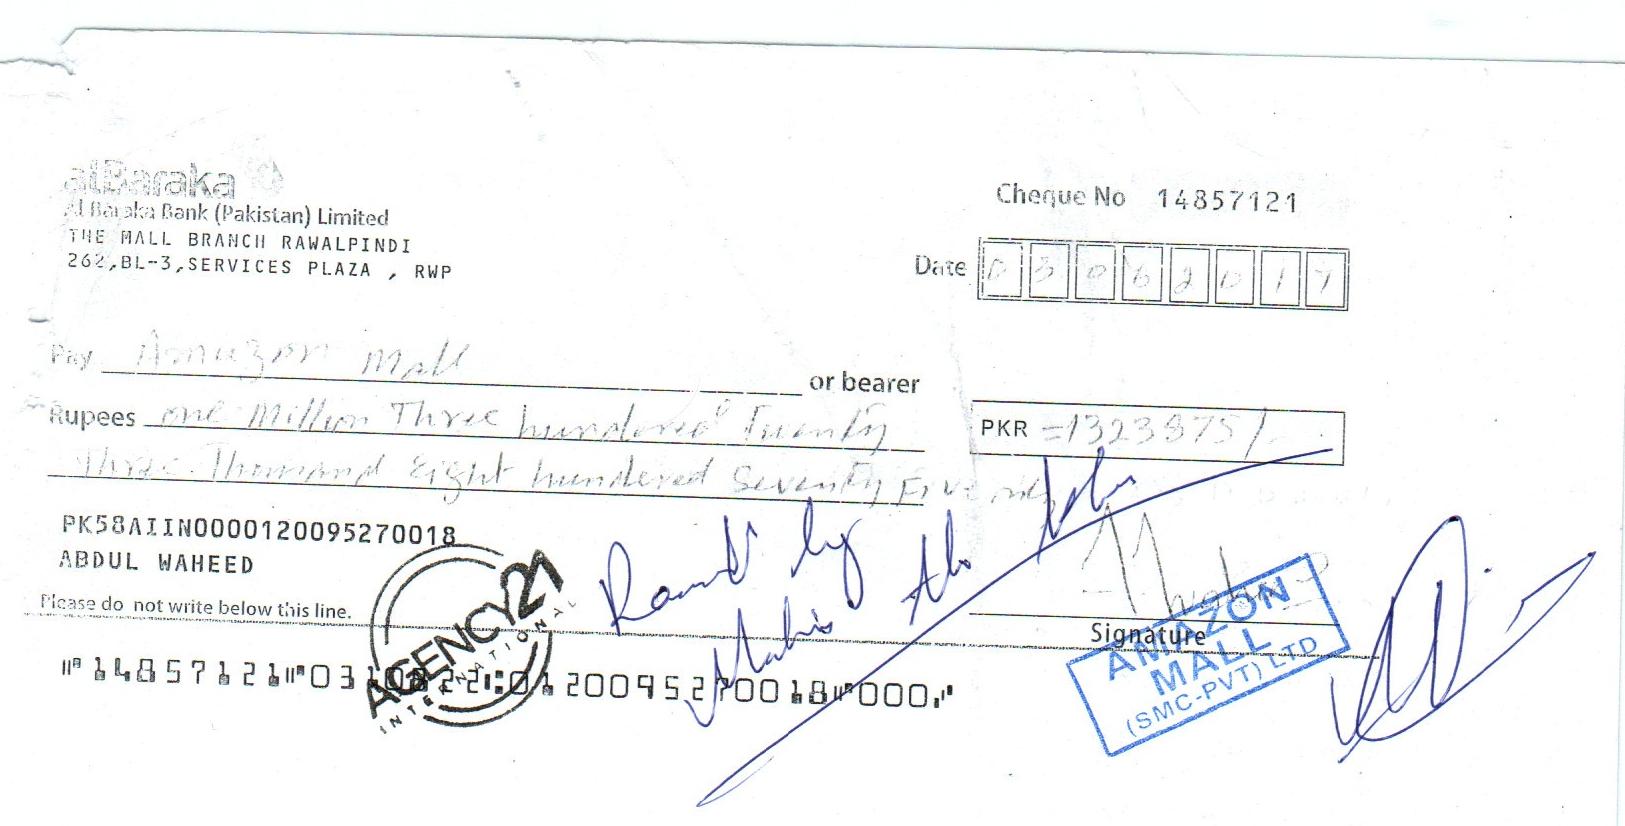 alBaraka
Al Baraka Bank (Pakistan) Limited
THE MALL BRANCH RAWALPINDI
262,BL-3,SERVICES PLAZA , RWP
Cheque No 14857121
Date 03062017
Pay Amazon Mall or bearer
Rupees one Million Three hundered Twenty
PKR =1323875/-
Three Thousand Eight hundered Seventy Five only
PK58AIIN0000120095270018
ABDUL WAHEED
Please do not write below this line.
Signature
AGENCY21
INTERNATIONAL
by
AMAZON
MALL
(SMC-PVT) LTD